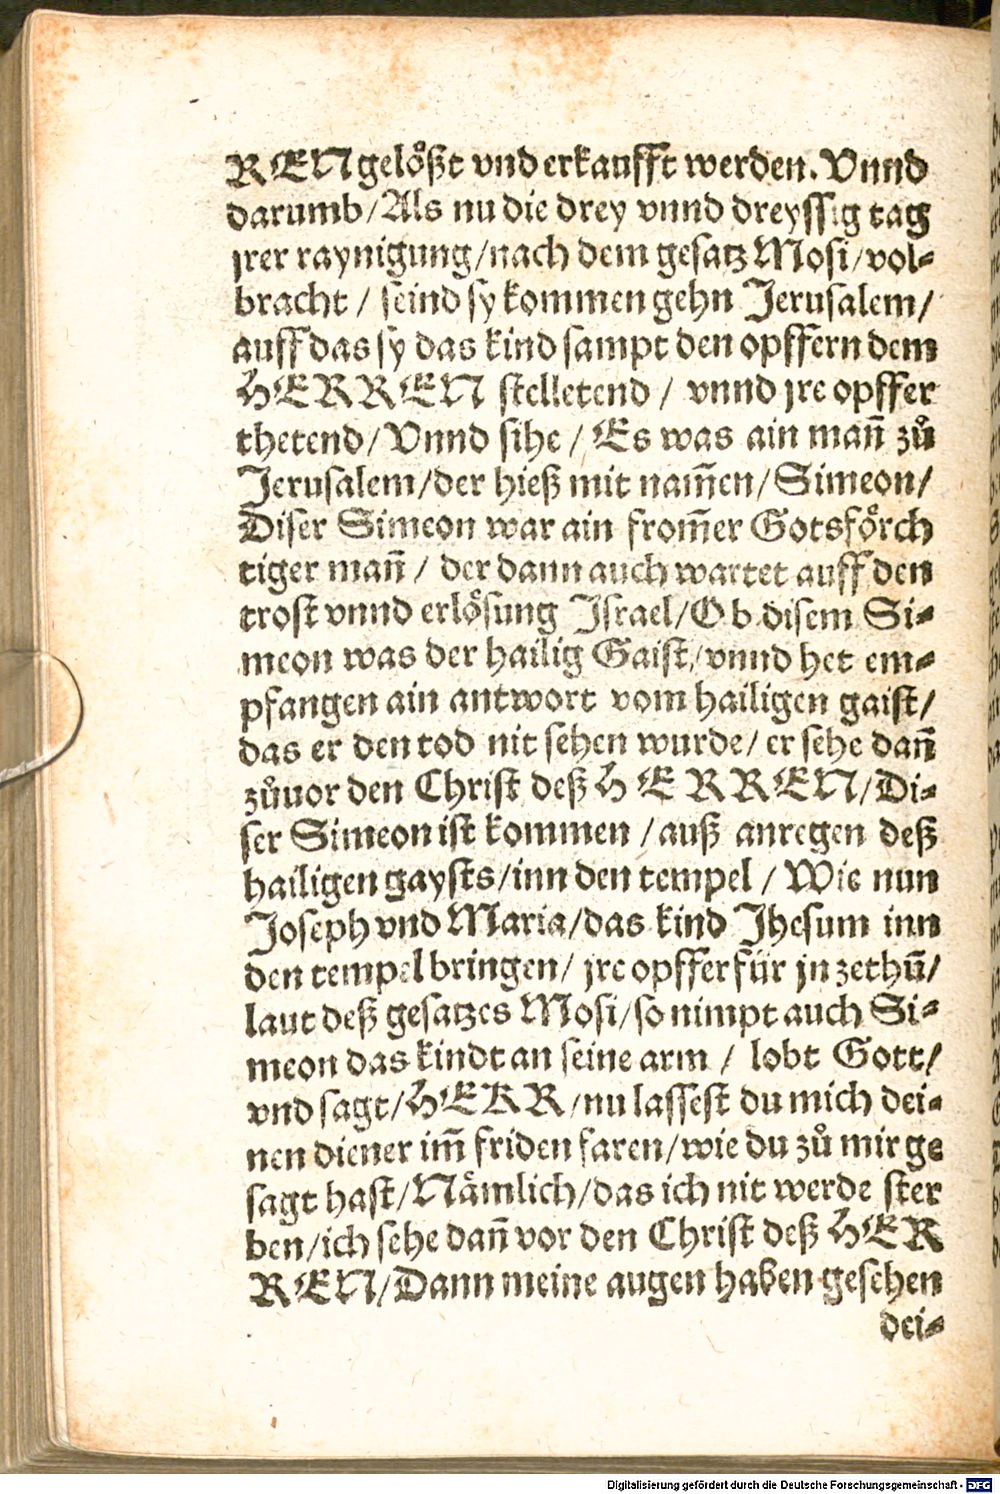 REN geloͤßt vnd erkaufft werden. Vnnd
darumb / Als nu die drey vnnd dreyssig tag
jrer raynigung / nach dem gesatz Mosi / vol⸗
bracht / seind sy kommen gehn Jerusalem /
auff das sy das kind sampt den opffern dem
HERREN stelletend / vnnd jre opffer
thetend / Vnnd sihe / Es was ain man̄ zuͦ
Jerusalem / der hieß mit nam̄en / Simeon /
Diser Simeon war ain from̄er Gotsfoͤrch
tiger man̄ / der dann auch wartet auff den
trost vnnd erloͤsung Jsrael / Ob disem Si⸗
meon was der hailig Gaist / vnnd het em⸗
pfangen ain antwort vom hailigen gaist /
das er den tod nit sehen wurde / er sehe dan̄
zuͦuor den Christ deß HERREN / Di⸗
ser Simeon ist kommen / auß anregen deß
hailigen gaysts / inn den tempel / Wie nun
Joseph vnd Maria / das kind Jhesum inn
den tempel bringen / jre opffer für jn zethuͦ̄ /
laut deß gesatzes Mosi / so nimpt auch Si⸗
meon das kindt an seine arm / lobt Gott /
vnd sagt / HERR / nu lassest du mich dei⸗
nen diener im̄ friden faren / wie du zuͦ mir ge
sagt hast / Naͤmlich / das ich nit werde ster
ben / ich sehe dan̄ vor den Christ deß HER
REN / Dann meine augen haben gesehen
dei⸗
Digitalisierung gefördert durch die Deutsche Forschungsgemeinschaft - DFG